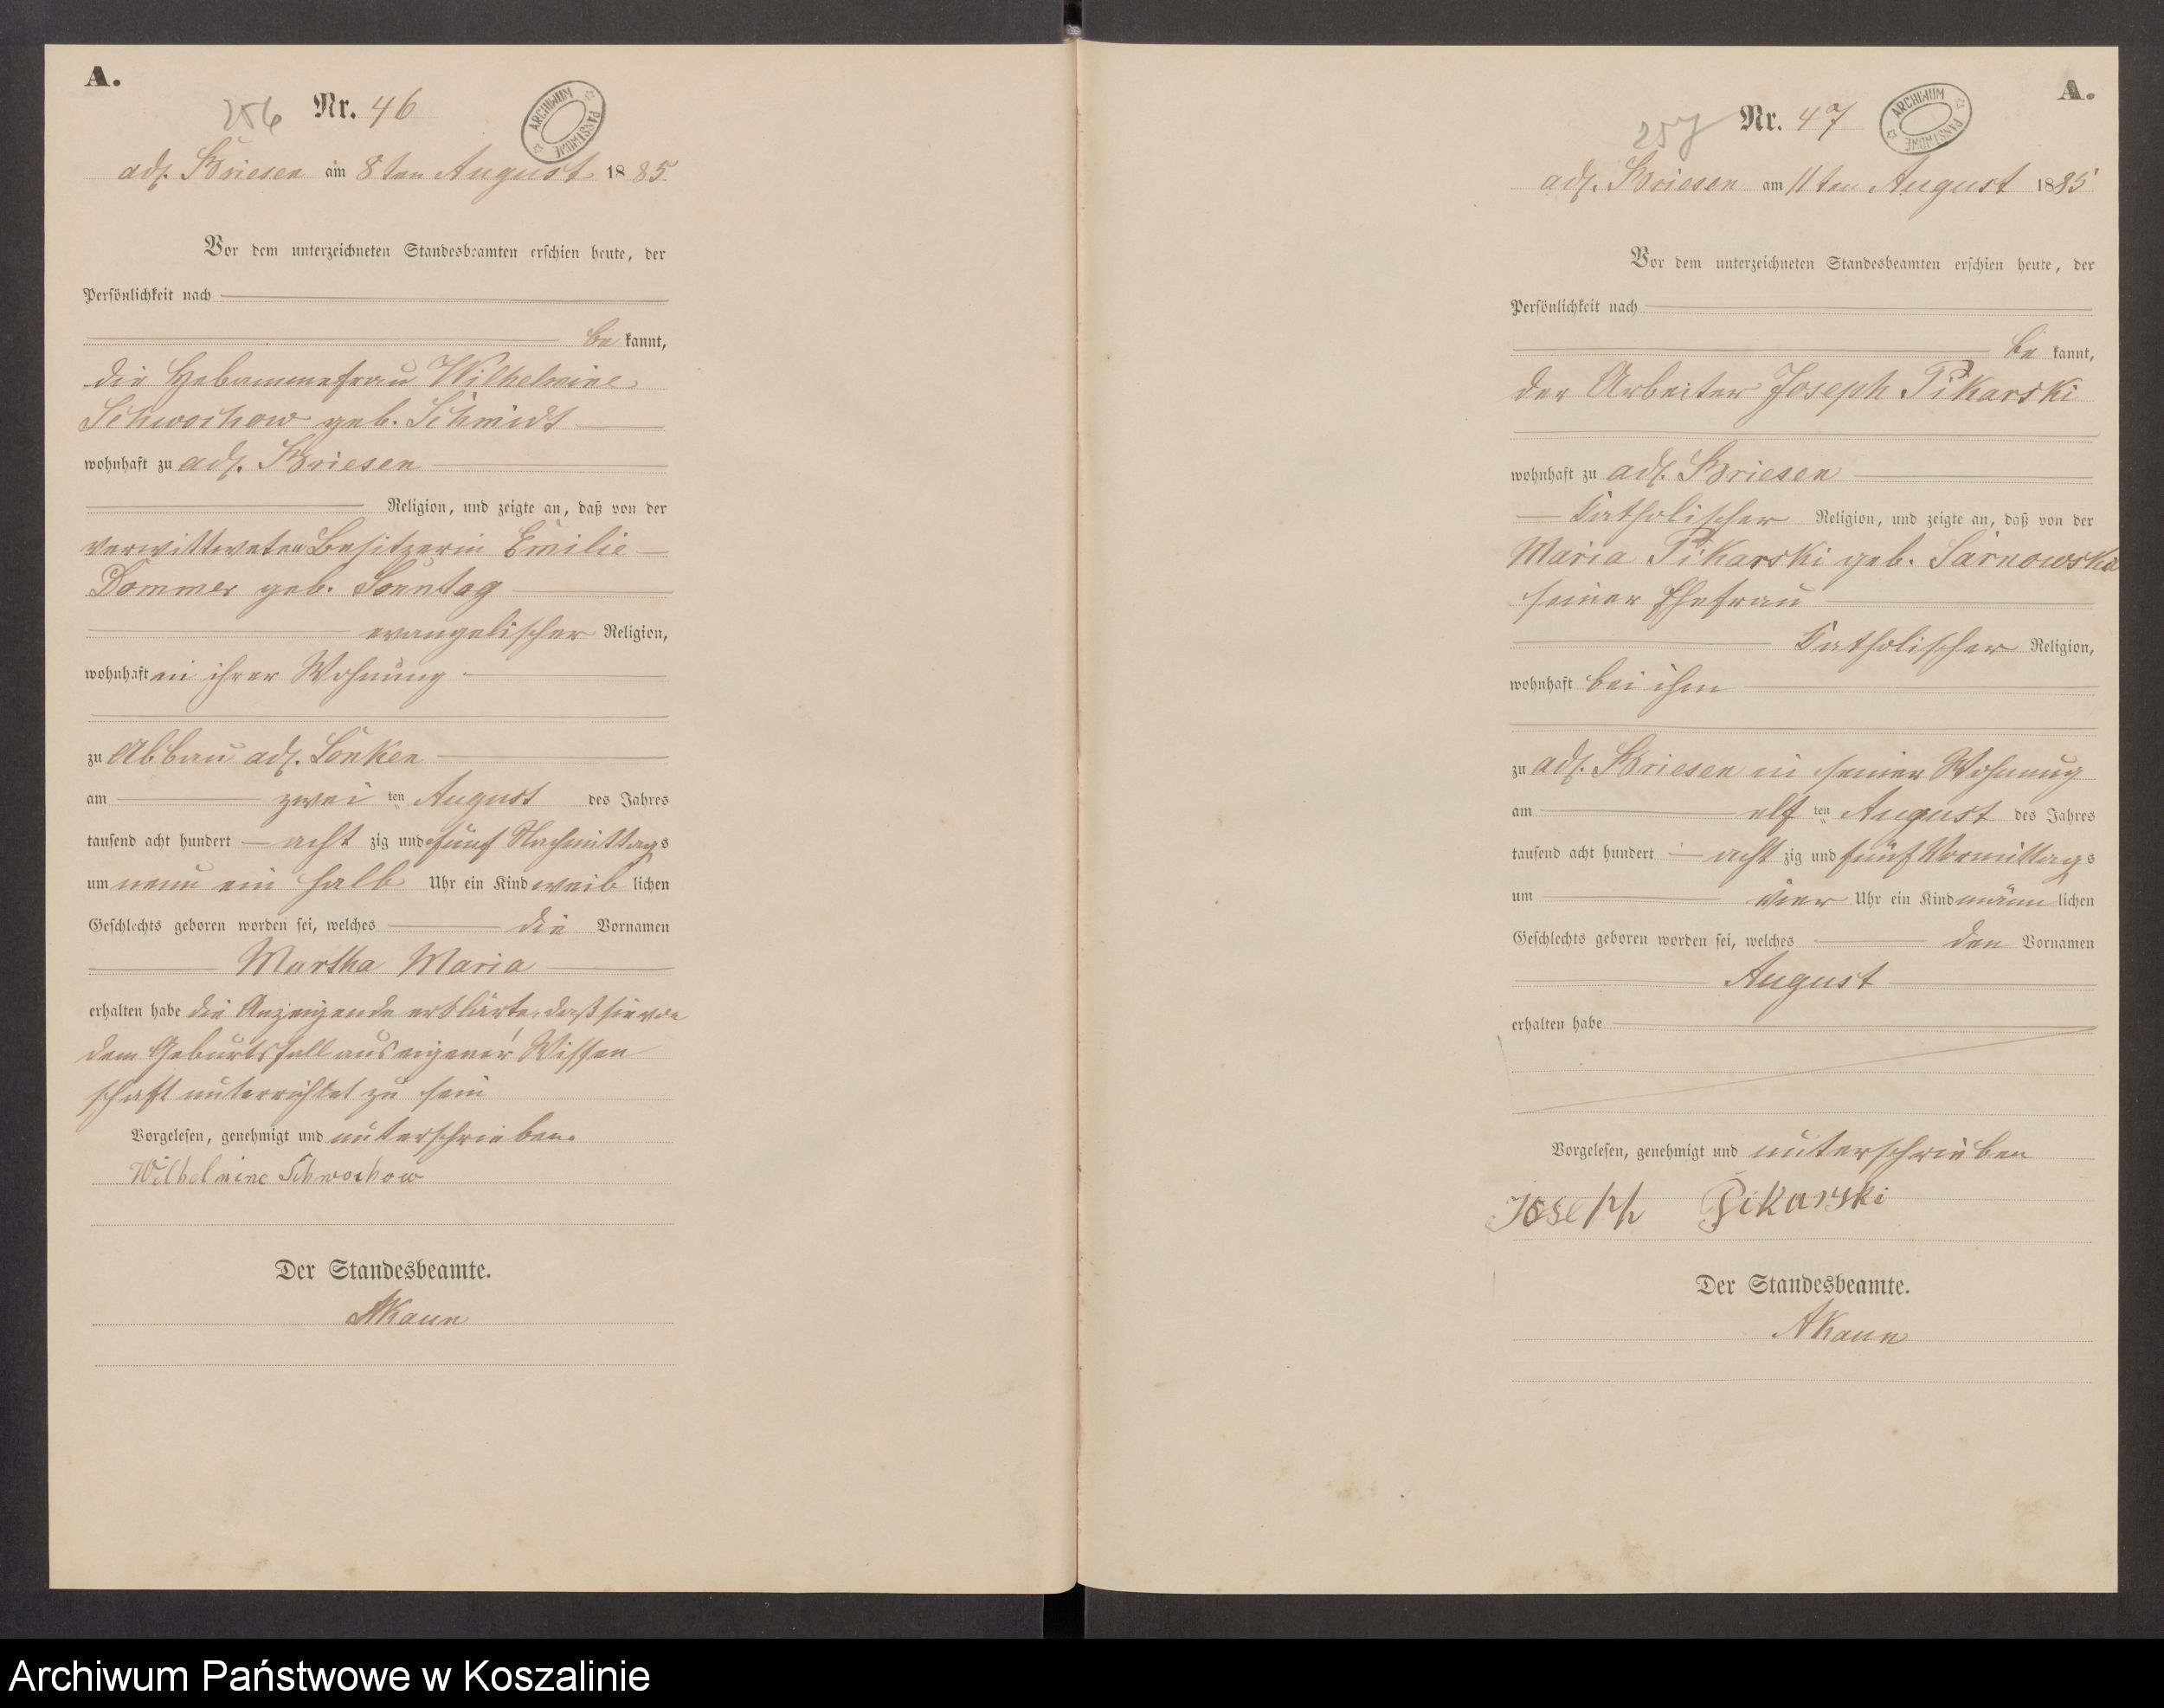 A.
256 Nr. 46
ARCHIWUM PAŃSTWOWE
adl. Briesen am 8ten August 1885
Vor dem unterzeichneten Standesbeamten erschien heute, der
Persönlichkeit nach
be kannt,
die Hebammefrau Wilhelmine
Schwochow geb. Schmidt
wohnhaft zu adl. Briesen
Religion, und zeigte an, daß von der
verwittweten Besitzerin Emilie
Dommer geb. Sonntag
evangelischer Religion,
wohnhaft in ihrer Wohnung
zu Abbau adl. Lonken
am zwei ten August des Jahres
tausend acht hundert acht zig und fünf Nachmittags
um neun ein halb Uhr ein Kind weib lichen
Geschlechts geboren worden sei, welches die Vornamen
Martha Maria
erhalten habe die Anzeigende erklärte, daß sie von
dem Geburtsfall aus eigener Wissen
schaft unterrichtet zu sein
Vorgelesen, genehmigt und unterschrieben.
Wilhelmine Schwochow
Der Standesbeamte.
AKaun
A.
257 Nr. 47
ARCHIWUM PAŃSTWOWE
adl. Briesen am 11ten August 1885
Vor dem unterzeichneten Standesbeamten erschien heute, der
Persönlichkeit nach
be kannt,
der Arbeiter Joseph Pikarski
wohnhaft zu adl. Briesen
Katholischer Religion, und zeigte an, daß von der
Maria Pikarski geb. Sarnowska
seiner Ehefrau
Katholischer Religion,
wohnhaft bei ihm
zu adl. Briesen in seiner Wohnung
am elf ten August des Jahres
tausend acht hundert acht zig und fünf Vormittags
um vier Uhr ein Kind männ lichen
Geschlechts geboren worden sei, welches den Vornamen
August
erhalten habe
Vorgelesen, genehmigt und unterschrieben
Joseph Pikarski
Der Standesbeamte.
AKaun
Archiwum Państwowe w Koszalinie